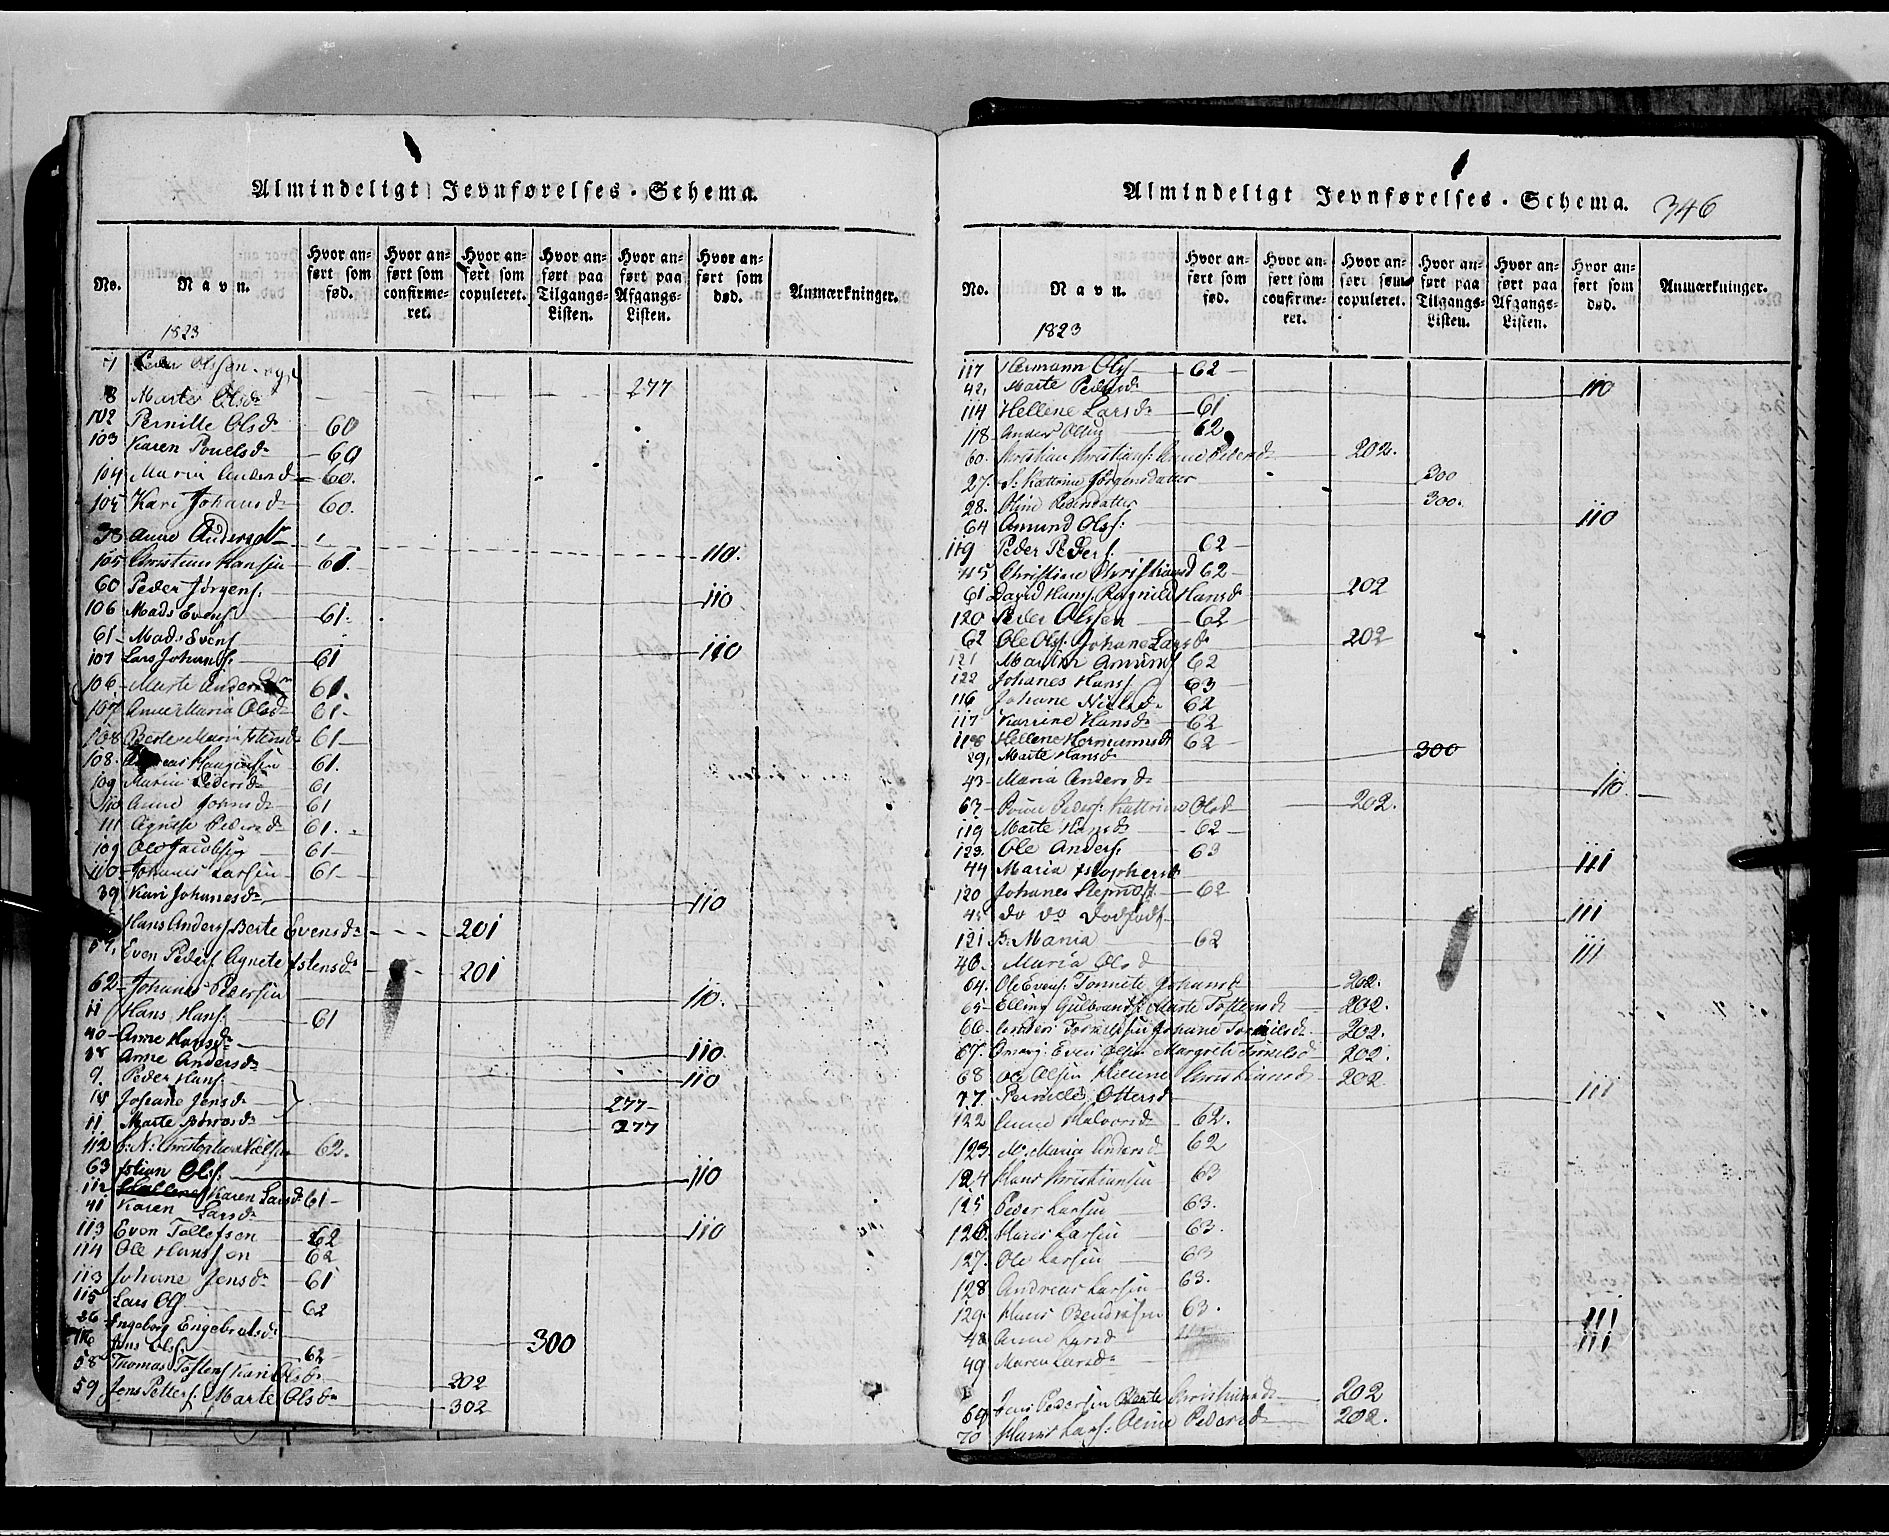 Almindeligt Jevnførelses-Schema.
No.	Navn.	Hvor anført som fød.	Hvor anført som confirmeret.	Hvor anført som copuleret.	Hvor anført paa Tilgangs-Listen.	Hvor anført paa Afgangs-Listen.	Hvor anført som død.	Anmærkninger.
1823
7 Peder Olssen
8 Marte Olsdr 277
102 Pernille Olsdr 60
103 Karen Pouelsdr 60
104 Maria Andersdr 60.
105 Kari Johansdr 60.
38 Anne Andersdr 110.
105 Christian Hansen 61.
60 Peder Jørgens. 110
106 Mads Evens. 61.
61 Mads Evens 110
107 Lars Johans. 61
106 Marte Andersdr 61.
107 Anne Maria Olsdr 61
108 Berte Maria Istensdr 61
108. Haugensen 61.
109 Maria Pedersdr 61
110 Anne Johnsdr 61
111 Agnethe Pedersdr 61.
109 Ole Jacobsen 61
110 Johanes Larsen 61
39 Kari Johanesdr, 110
Hans Anders. Berte Evensdr 201
57, Even Peders. Agnete Istensdr 201
62 Johanes Pedersen 110.
11 Hans Hans. 61
40 Anne Hansdr 110.
Anne Andersdr 110
9. Peder Hans.
10 Johane Jensdr 277
11. Marte 277
112 Christopher Nielsen 62.
63 Istian Ols. 110
112 Karen Larsdr 61
41 Karen Larsdr 110
113 Even Tollefsen 62
114 Ole Hanssen 62
113 Johane Jensdr 61
115 Lars Ols 62
26 Ingeborg Engebretsdr 300
116 Jens Ols. 62
58 Thomas Tostens. Kari Olsdr 202
59 Jens Petters. Marte Olsdr 302
Almindeligt Jevnførelses-Schema. 346
No.	Navn.	Hvor anført som fød.	Hvor anført som confirmeret.	Hvor anført som copuleret.	Hvor anført paa Tilgangs-Listen.	Hvor anført paa Afgangs-Listen.	Hvor anført som død.	Anmærkninger.
1823
117 Hermann Ols 62
42, Marte Pedersdr 110
114 Hellene Larsdr 61
118 Anders Olsen 62
60. Christian Christians. Anne Pedersdr 202.
27. Kattrine Jørgensdatter 300
28. Oline Pedersdatter 300.
64 Amund Ols: 110
119 Peder Peders. 62
115 Christine Christiansd 62
61 David Hans. Ragnild Hansdr 202
120 Peder Olssen 62
62 Ole Ols. Johane Larsdr 202
121 Martin Amunds 62
122 Johanes Hans. 63
116 Johane Nielsdr 62
117 Karrine Hansdr 62
118 Hellene Hermansdr 62
29, Marte Hansdr 300
43 Maria Andersdr 110.
63 Poue Peders. Kattrine Olsdr 202.
119 Marte Hansdr 62
123. Ole Anders. 63
44 Maria 111
120 Johanes 62
45 do do Dødfødt 111
121 B: Maria 62
46. Maria Olsd 111
64. Ole Evens. Tonnete Johansdr 202.
65 Elling Gulbrands. Marte Tostensdr 202.
66 Anders Torkilsen Johane Torkilsdr 202.
67. Even Olsen Margrethe Torkelsdr 202.
68 Ole Olsen Hellene Christiansdr 202
47. Pernille Ottersd 111
122 Anne Halvorsdr 62.
123. M. Maria Andersdr 62
124 Hans Christiansen 63
125 Peder Larsen 63.
126. Hans Larsen 63.
127. Ole Larsen 63
128 Andreas Larsen 63.
129. Hans Bendixsen 63.
48 Anne Larsd 111
49 Maren Larsdr 111
69 Jens Pedersen Marte Christiansdr 202
70 Hans Lars: Oline Pedersdr 202.